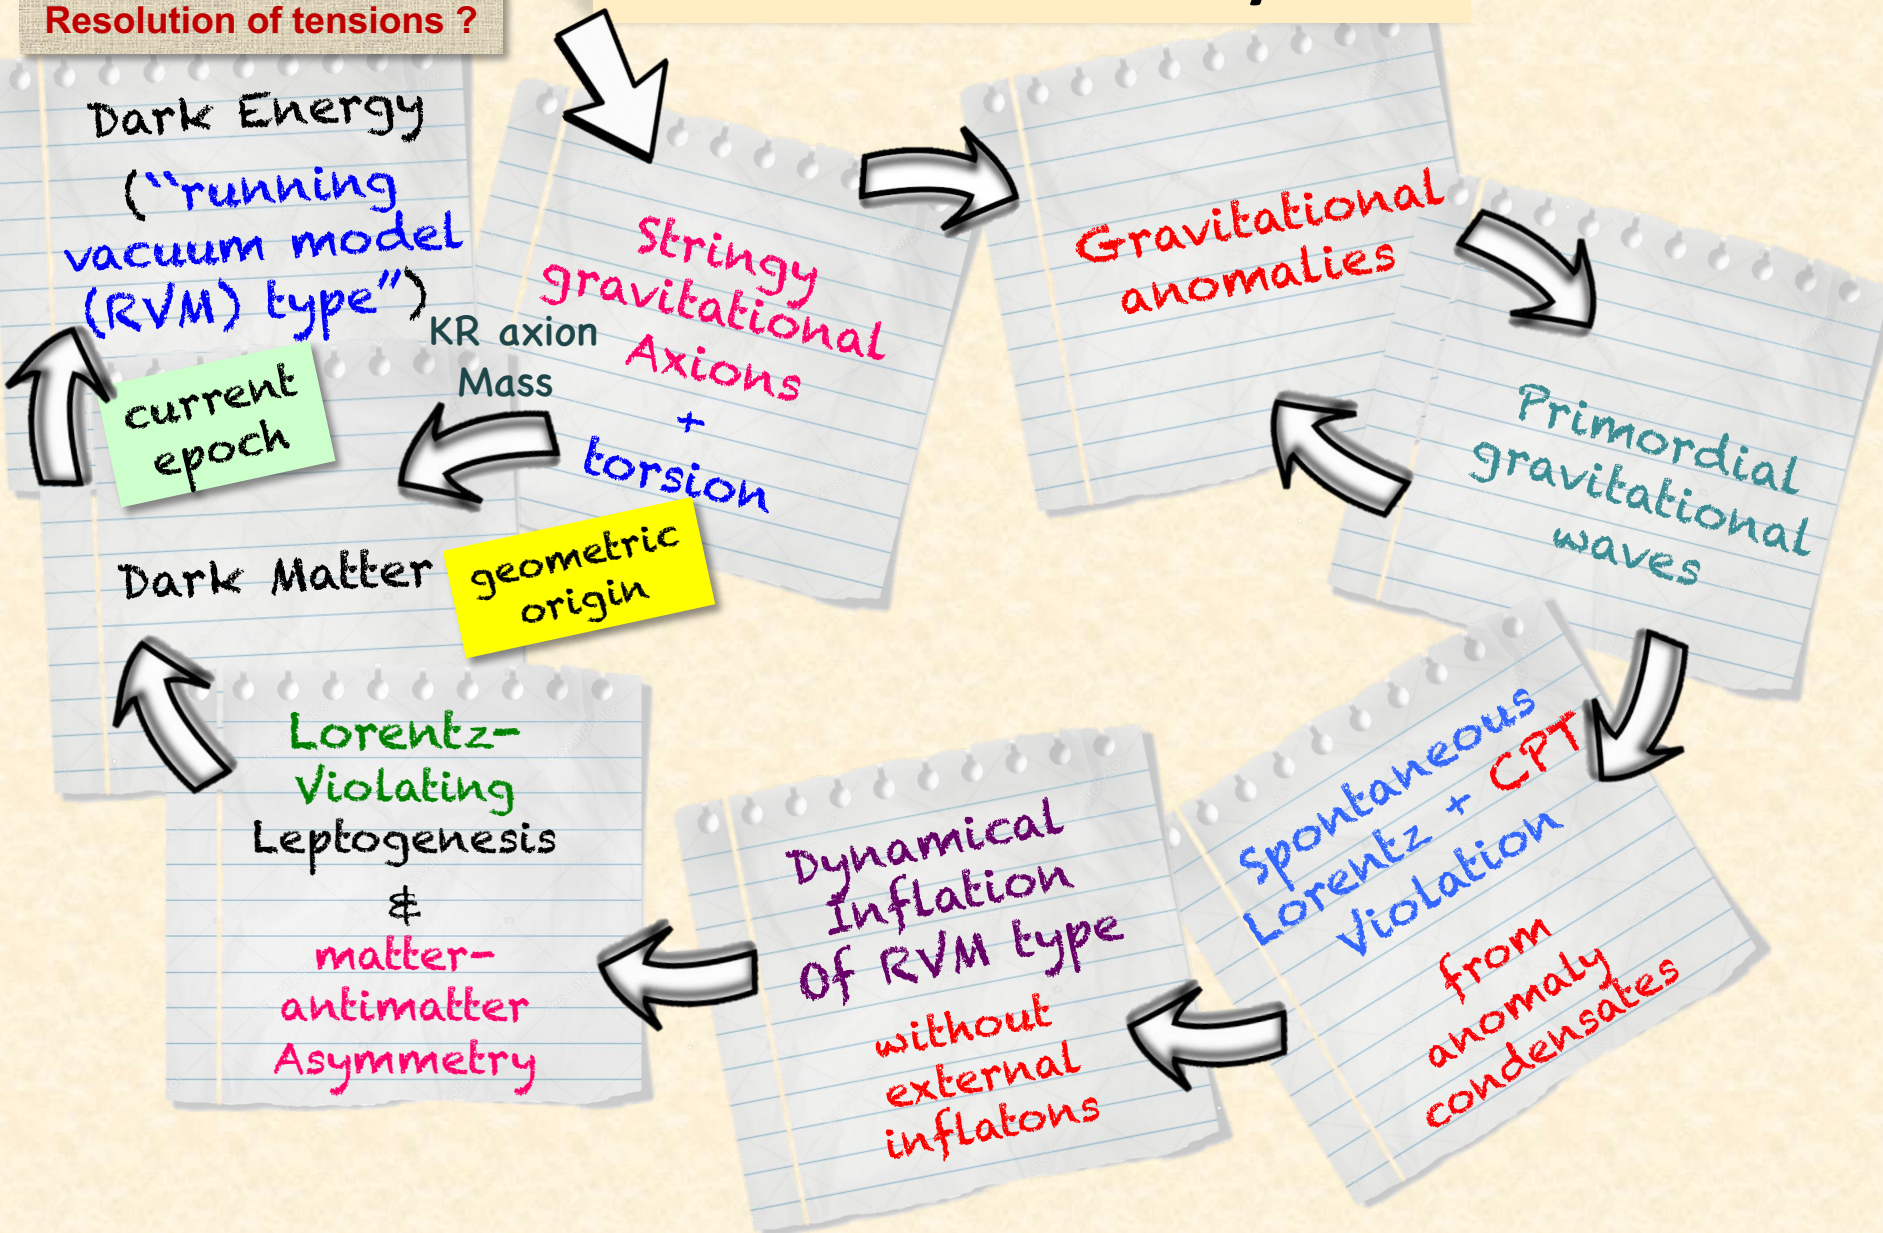 Resolution of tensions ?
Dark Energy
(``running
vacuum model
(RVM) type”)
current
epoch
KR axion
Mass
Stringy
gravitational
Axions
+
torsion
geometric
origin
Dark Matter
Gravitational
anomalies
Primordial
gravitational
waves
Spontaneous
Lorentz + CPT
Violation
from
anomaly
condensates
Dynamical
Inflation
Of RVM type
without
external
inflatons
Lorentz-
Violating
Leptogenesis
&
matter-
antimatter
Asymmetry